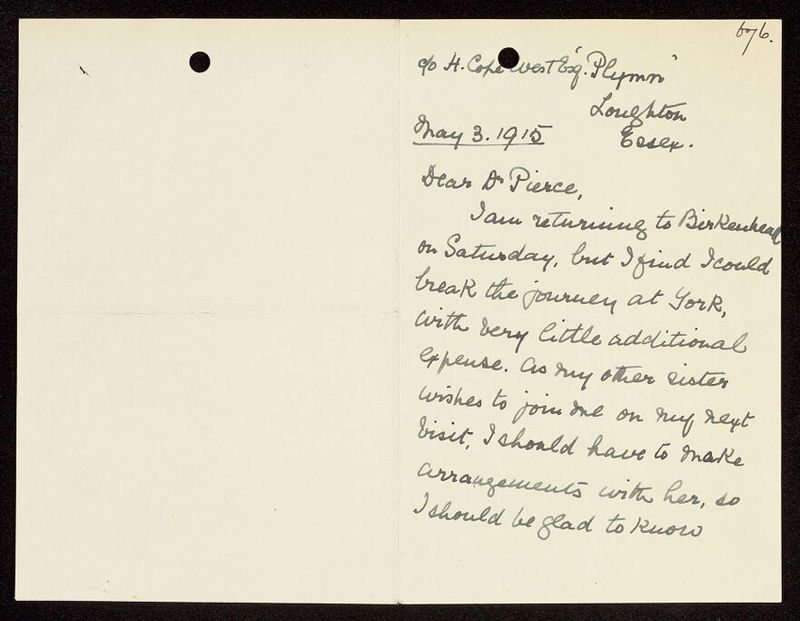 676.
c/o H. Cope West Esq. "Plymn"
Loughton
May 3. 1915 Essex.
Dear Dr Pierce,
I am returning to Birkenhead
on Saturday, but I find I could
break the journey at York,
with very little additional
expense. As my other sister
wishes to join me on my next
visit, I should have to make
arrangements with her, so
I should be glad to know